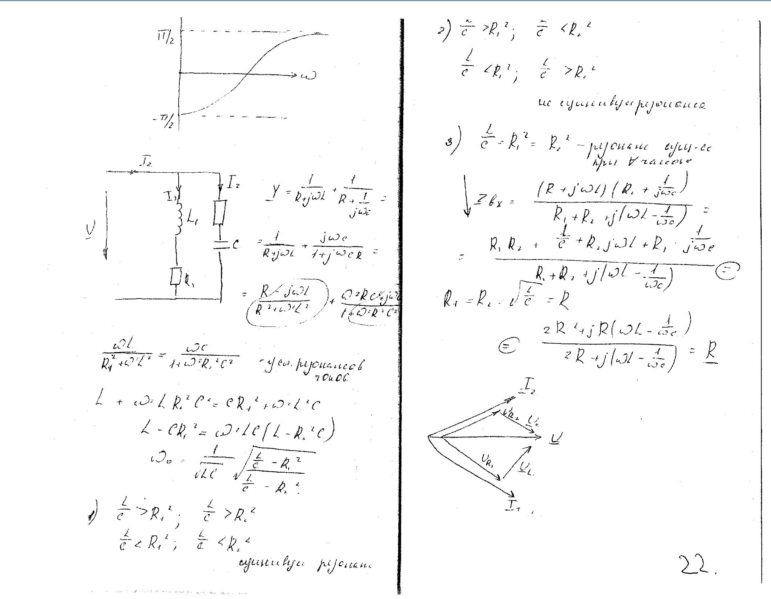 π/2
ω
-π/2
I₂
I₁
I₂
L₁
U
C
R₁
Y = 1/(R+jωL) + 1/(R + 1/(jωc)) =
= 1/(R+jωL) + jωc/(1+jωcR) =
= (R - jωL)/(R²+ω²L²) + (ω²RC²+jωC)/(1+ω²R²C²)
ωL/(R₁²+ω²L²) = ωC/(1+ω²R₂²C²) - усл. резонансов
токов
L + ω²LR₂²C² = CR₁² + ω²L²C
L - CR₁² = ω²LC(L - R₂²C)
ω₀ = 1/√LC √((L/C - R₁²)/(L/C - R₂²))
1) L/C > R₁²; L/C > R₂²
L/C < R₁²; L/C < R₂²
существует резонанс
2) L/C > R₁²; L/C < R₂²
L/C < R₁²; L/C > R₂²
не существует резонанса
3) L/C = R₁² = R₂² - резонанс сущ-ет
при ∀ частоте
Zвх = (R+jωL)(R₂ + 1/(jωc)) / (R₁+R₂+j(ωL - 1/(ωc))) =
= (R₁R₂ + L/C + R₂jωL + R₁ · 1/(jωc)) / (R₁+R₂+j(ωL - 1/(ωc))) =
R₁ = R₂ = √(L/C) = R
= (2R²+jR(ωL - 1/(ωc))) / (2R+j(ωL - 1/(ωc))) = R
I₂
U_R₂
U_c
U
U_R₁
U_L
I₁
22.